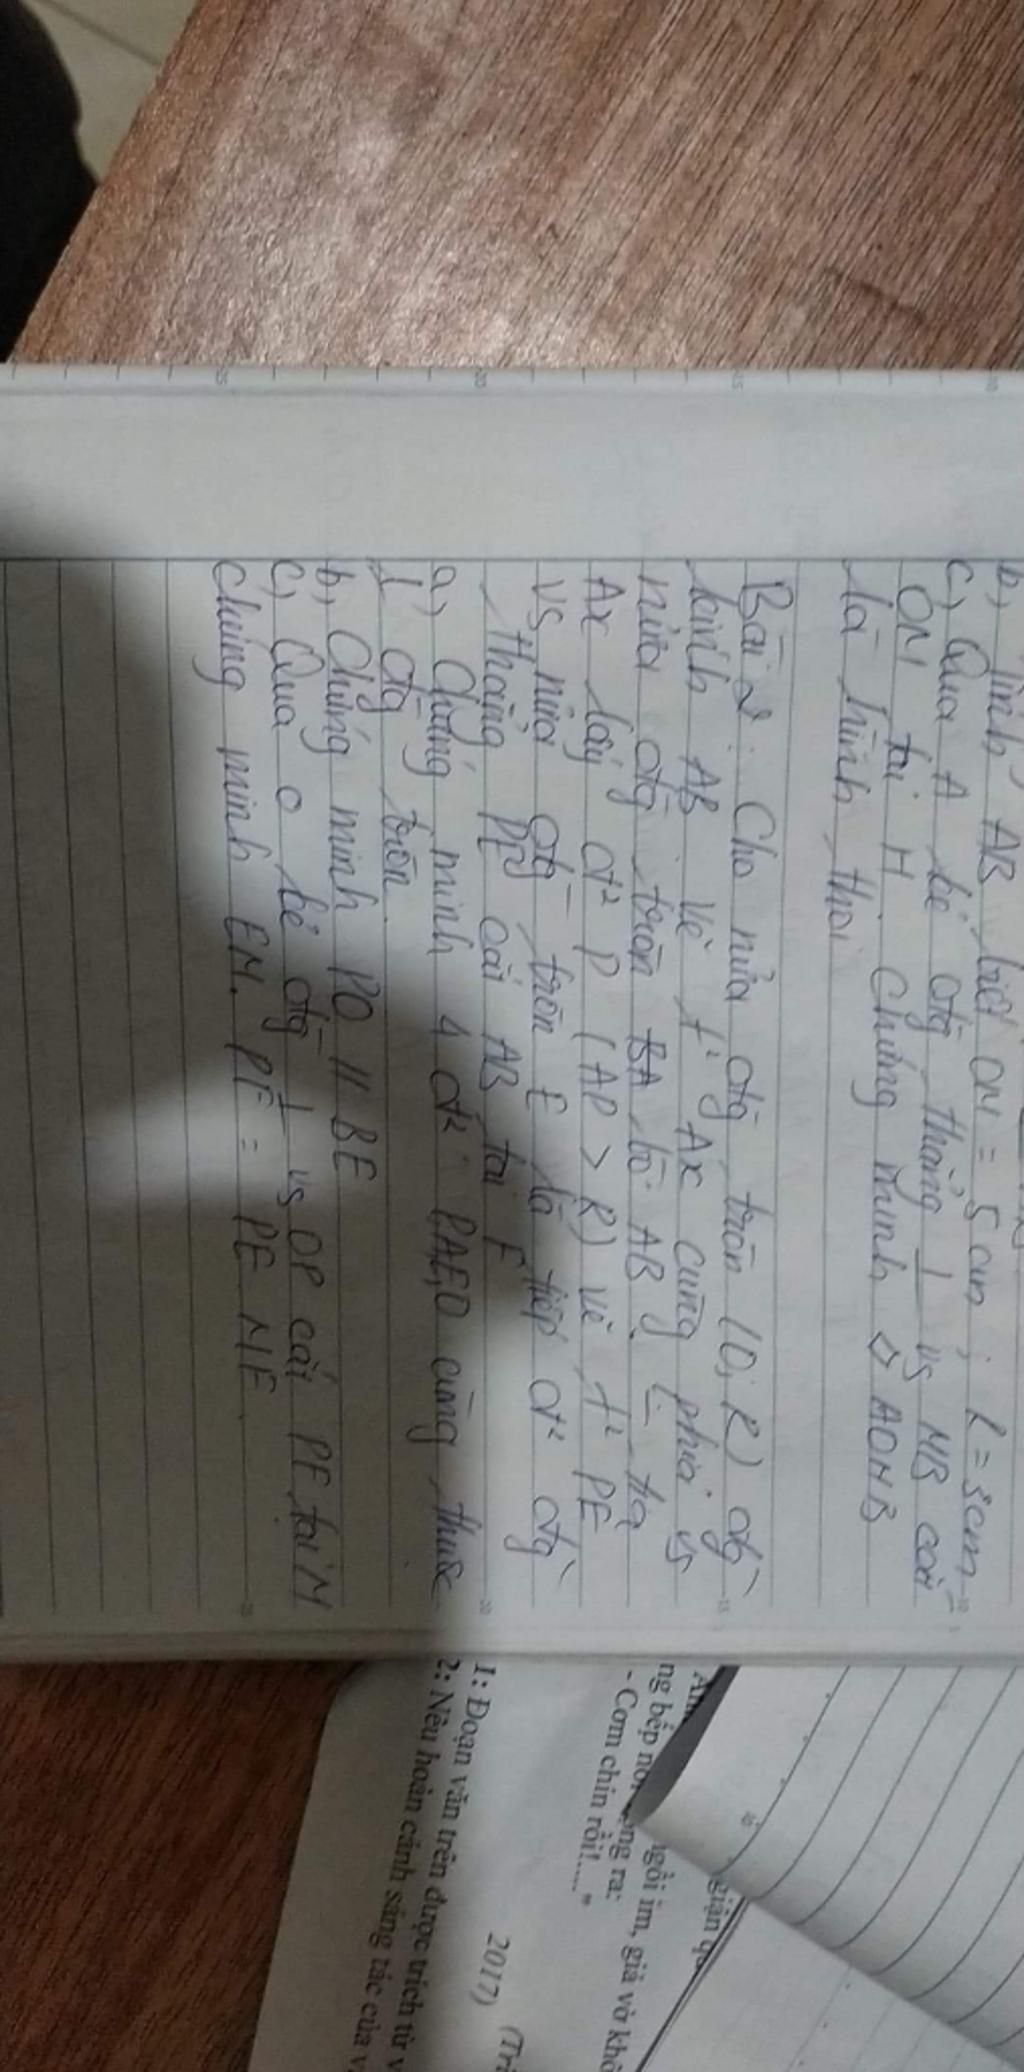 b, Tính AB biết OM = 5 cm ; R = 3cm
c, Qua A kẻ đtg thẳng ⊥ vs MB cắt
OM tại H. Chứng minh ◇ AOHB
là hình thoi
Bài 2: Cho nửa đtg tròn (O; R) đg
kính AB vẽ t² Ax cùng phía vs
nửa đtg tròn BA bờ AB. Từ
Ax lấy đ² P (AP > R) vẽ t² PE
vs nửa đtg tròn E là tiếp đ² đtg
thẳng PE cắt AB tại F
a, Chứng minh 4 đ² P,A,E,O cùng thuộc
1 đtg tròn
b, Chứng minh PO // BE
c, Qua O kẻ đtg ⊥ vs OP cắt PF tại M
Chứng minh EM. PF = PE MF
An
giận qu
ng bếp
ngồi im, giả vờ khô
ng ra:
- Cơm chín rồi!....."
2017)
(Tr
1: Đoạn văn trên được trích từ v
2: Nêu hoàn cảnh sáng tác của v